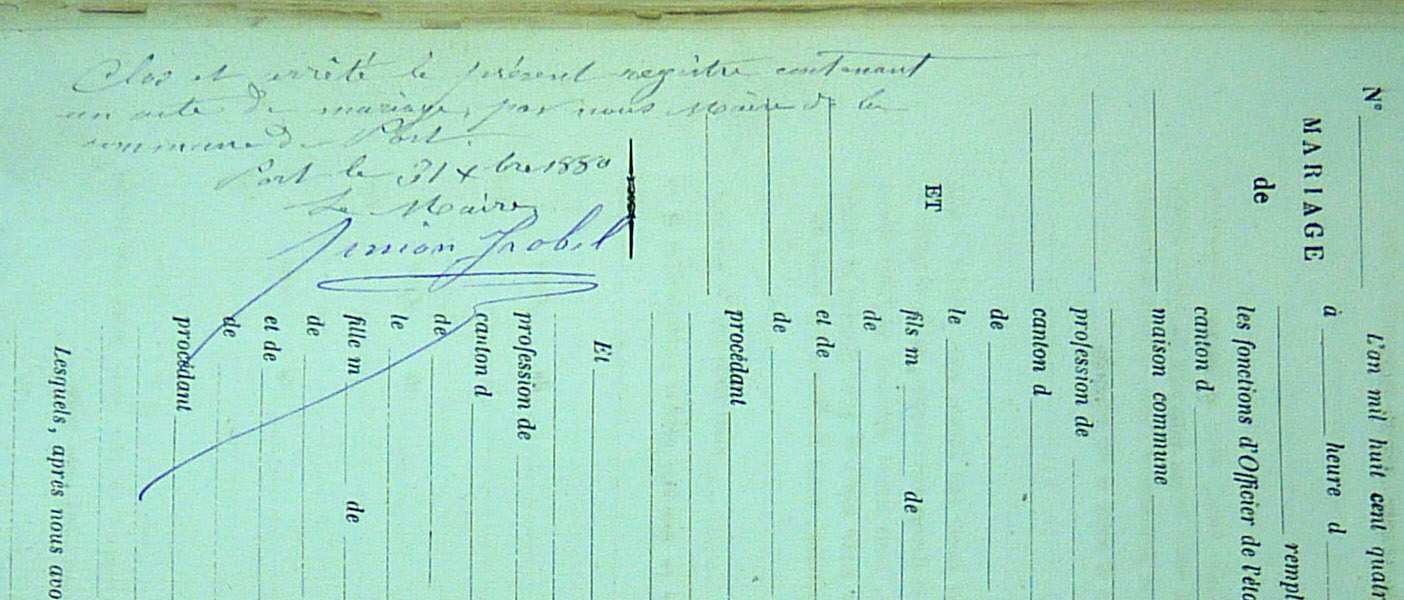 Clos et arrêté le présent registre contenant
un acte de mariage, par nous Maire de la
commune de Port.
Port le 31 Xbre 1880
Le Maire
N°
MARIAGE
de
ET
L'an mil huit cent quatr
à heure d
rempl
les fonctions d'Officier de l'éta
canton d
maison commune
profession de
canton d
de
le
fils m de
de
et de
de
procédant
Et
profession de
canton d
de
le
fille m de
de
et de
de
procédant
Lesquels, après nous avo